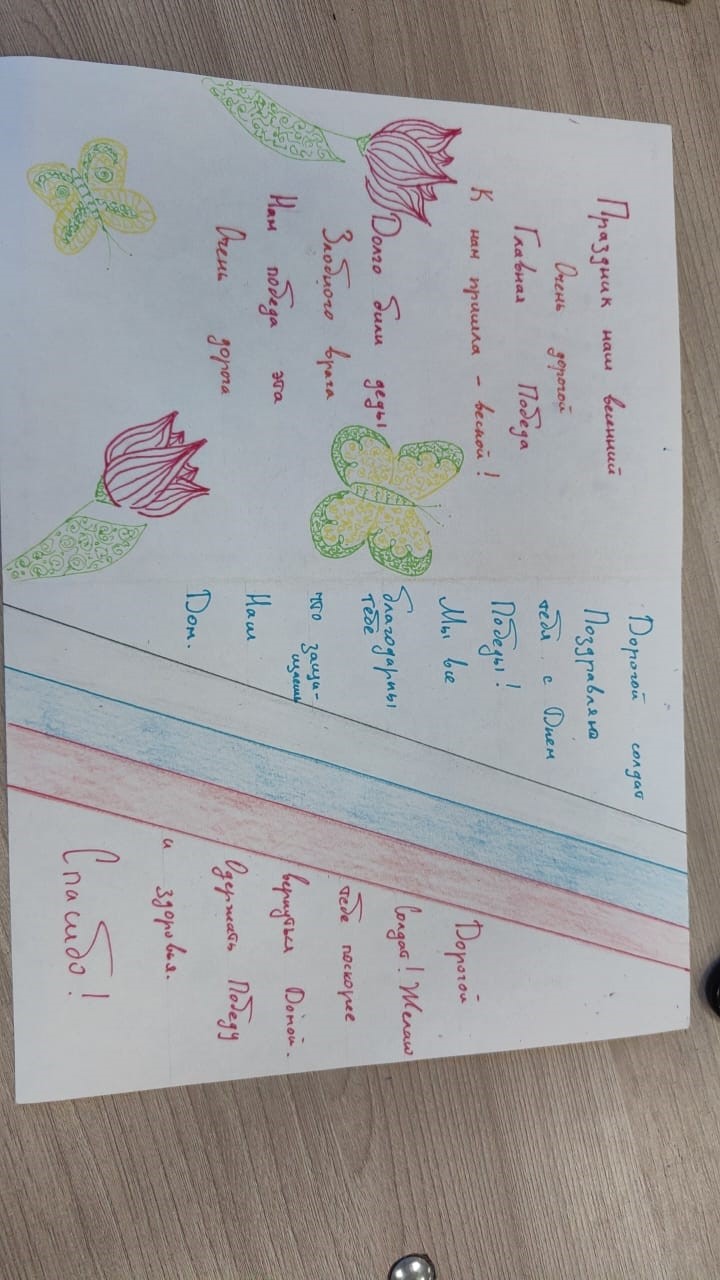 Праздник наш весенний
Очень дорогой
Главная Победа
К нам пришла - весной!
Долго били деды
Злобного врага
Нам победа эта
Очень дорога
Дорогой солдат
Поздравляю
тебя с Днем
Победы!
Мы все
благодарны
тебе
что защи-
щаешь
Наш
Дом.
Дорогой
Солдат! Желаю
тебе поскорее
вернуться Домой.
Одержать Победу
и здоровья.
Спасибо!